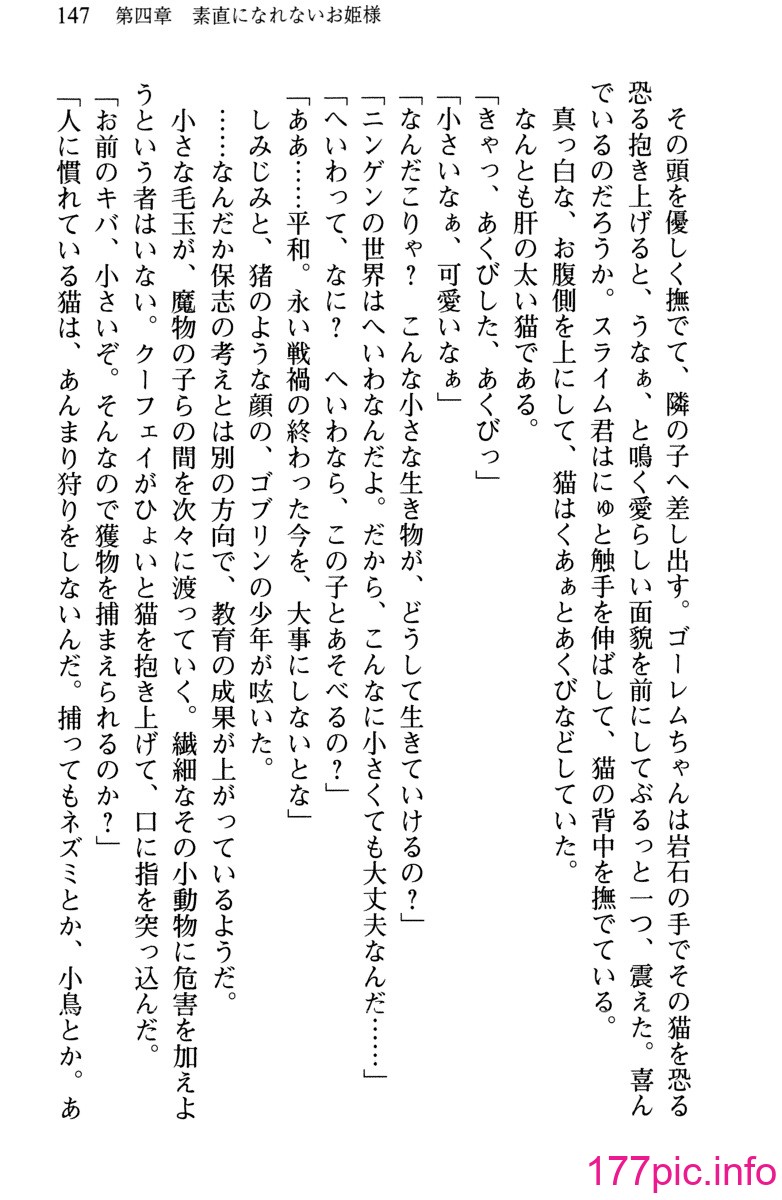 147　第四章　素直になれないお姫様
　その頭を優しく撫でて、隣の子へ差し出す。ゴーレムちゃんは岩石の手でその猫を恐る
恐る抱き上げると、うなぁ、と鳴く愛らしい面貌を前にしてぶるっと一つ、震えた。喜ん
でいるのだろうか。スライム君はにゅと触手を伸ばして、猫の背中を撫でている。
　真っ白な、お腹側を上にして、猫はくあぁとあくびなどしていた。
　なんとも肝の太い猫である。
「きゃっ、あくびした、あくびっ」
「小さいなぁ、可愛いなぁ」
「なんだこりゃ？　こんな小さな生き物が、どうして生きていけるの？」
「ニンゲンの世界はへいわなんだよ。だから、こんなに小さくても大丈夫なんだ……」
「へいわって、なに？　へいわなら、この子とあそべるの？」
「ああ……平和。永い戦禍の終わった今を、大事にしないとな」
　しみじみと、猪のような顔の、ゴブリンの少年が呟いた。
　……なんだか保志の考えとは別の方向で、教育の成果が上がっているようだ。
　小さな毛玉が、魔物の子らの間を次々に渡っていく。繊細なその小動物に危害を加えよ
うという者はいない。クーフェイがひょいと猫を抱き上げて、口に指を突っ込んだ。
「お前のキバ、小さいぞ。そんなので獲物を捕まえられるのか？」
「人に慣れている猫は、あんまり狩りをしないんだ。捕ってもネズミとか、小鳥とか。あ
177pic.info